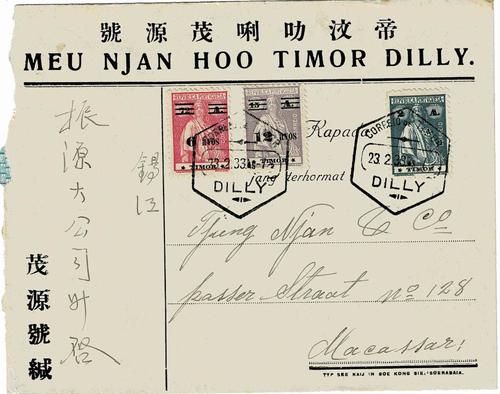 號源茂唎叻汶帝
MEU NJAN HOO TIMOR DILLY.
REPUBLICA PORTUGUESA
6 AVOS
TIMOR
REPUBLICA PORTUGUESA
12 AVOS
TIMOR
2 A.
TIMOR
23.2.33
DILLY
23.2.33
DILLY
Kapada
jang terhormat
Tjung Njan & Co
passer Straat no 128
Macassar
錫江
振源大公司升啓
茂源號緘
TYP SEE KAIJ IN BOE KONG SIE.-SOERABAIA.